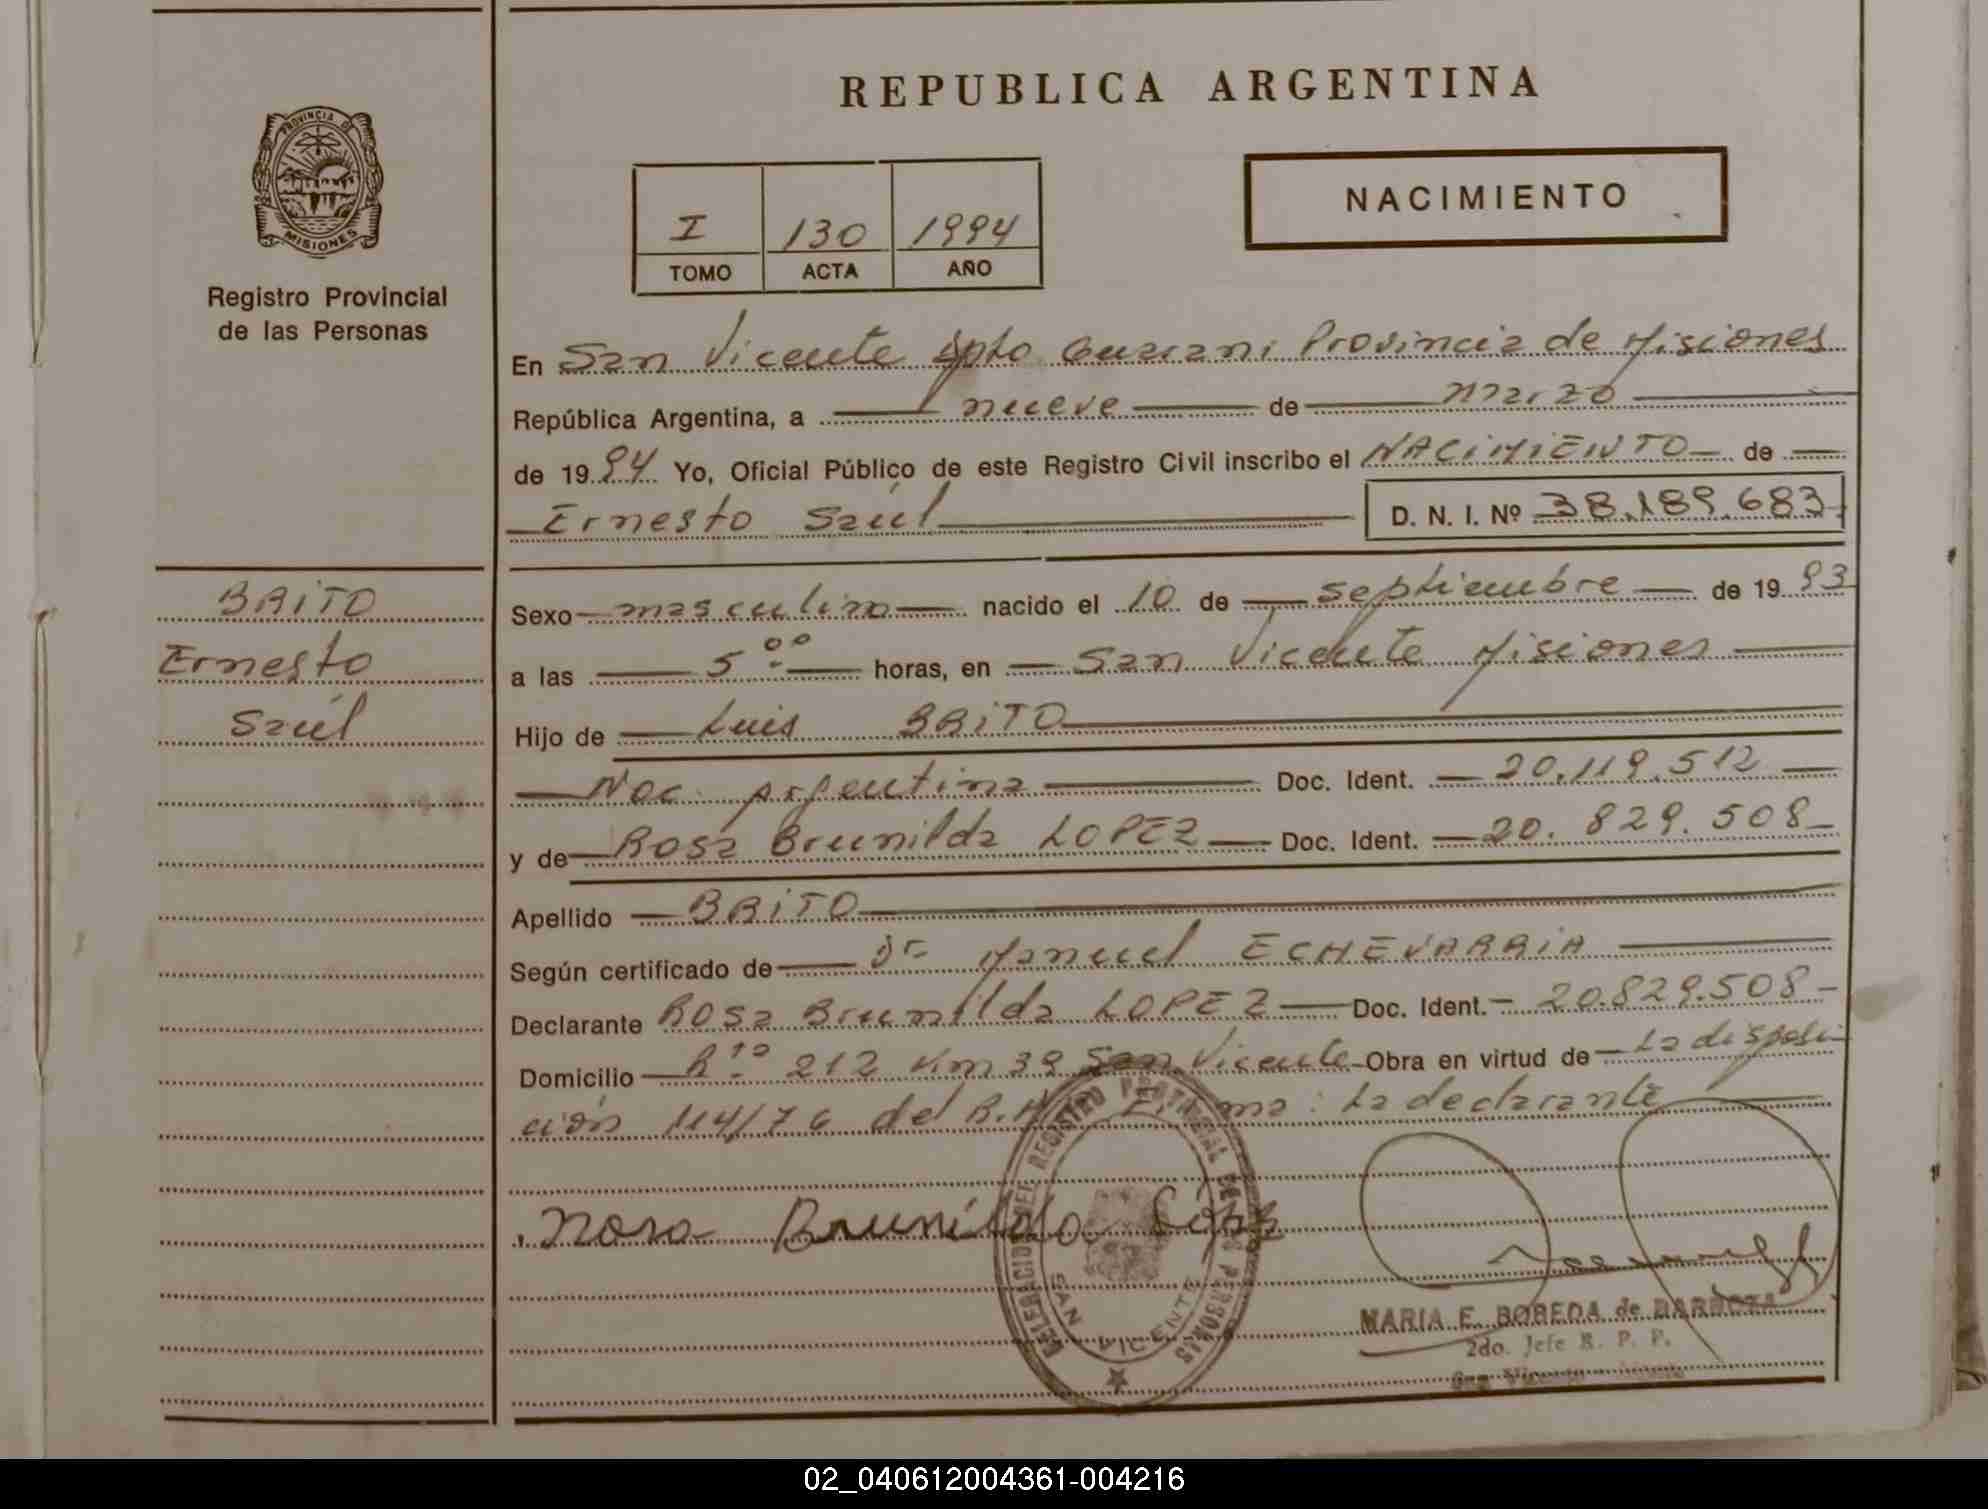 REPUBLICA ARGENTINA
PROVINCIA DE
MISIONES
Registro Provincial
de las Personas
I 130 1994
TOMO ACTA AÑO
NACIMIENTO
En San Vicente Dpto Guarani Provincia de Misiones
República Argentina, a nueve de marzo
de 1994 Yo, Oficial Público de este Registro Civil inscribo el NACIMIENTO de
Ernesto Saúl D. N. I. Nº 38.189.683
BRITO
Ernesto
Saúl
Sexo masculino nacido el 10 de septiembre de 1993
a las 5:00 horas, en San Vicente Misiones
Hijo de Luis BRITO
Nac. Argentina Doc. Ident. 20.119.512
y de Rosa Brunilda LOPEZ Doc. Ident. 20.829.508
Apellido BRITO
Según certificado de Dr Manuel ECHEVARRIA
Declarante Rosa Brunilda LOPEZ Doc. Ident. 20.829.508
Domicilio Rta 212 Km 39 San Vicente Obra en virtud de La disposi
ción 114/76 del : La declarante
Rosa Brunilda Lopez
DELEGACION DEL REGISTRO PROVINCIAL DE LAS PERSONAS
SAN VICENTE
MARIA E. BOBEDA de BARBOZA
2do. Jefe R. P. P.
San Vicente
02_040612004361-004216